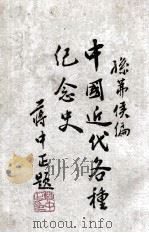 孫第侯編
中國近代各種
紀念史
蔣中正題
mtoou.info